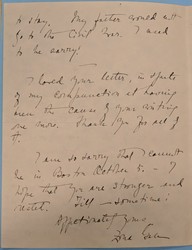 to stay. My father would not
go to the Civil War. I used
to be sorry!
I loved your letter, in spite
of my compunction at having
been the cause of your writing
one more. Thank you for all of
it.
I am so sorry that I cannot
be in Boston October 5. - I
hope that you are stronger and
Till - sometime!
Affectionately yours